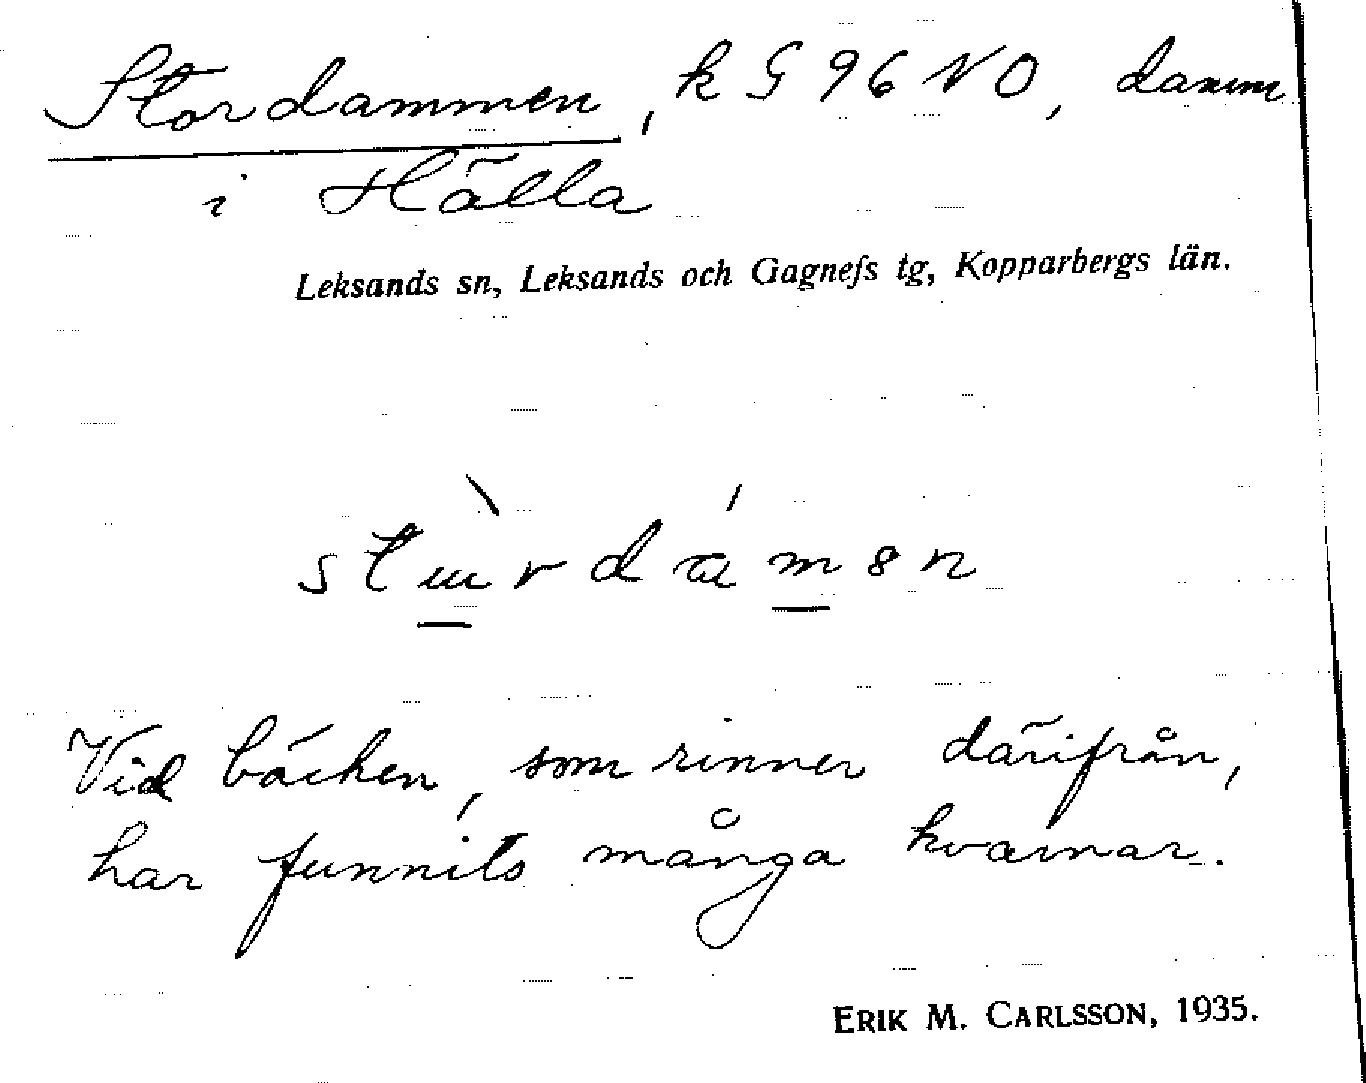 Stordammen, k G 96 NO, damm
i Hälla
Leksands sn, Leksands och Gagnefs tg, Kopparbergs län.
Vid bäcken, som rinner därifrån,
har funnits många kvarnar.
ERIK M. CARLSSON, 1935.